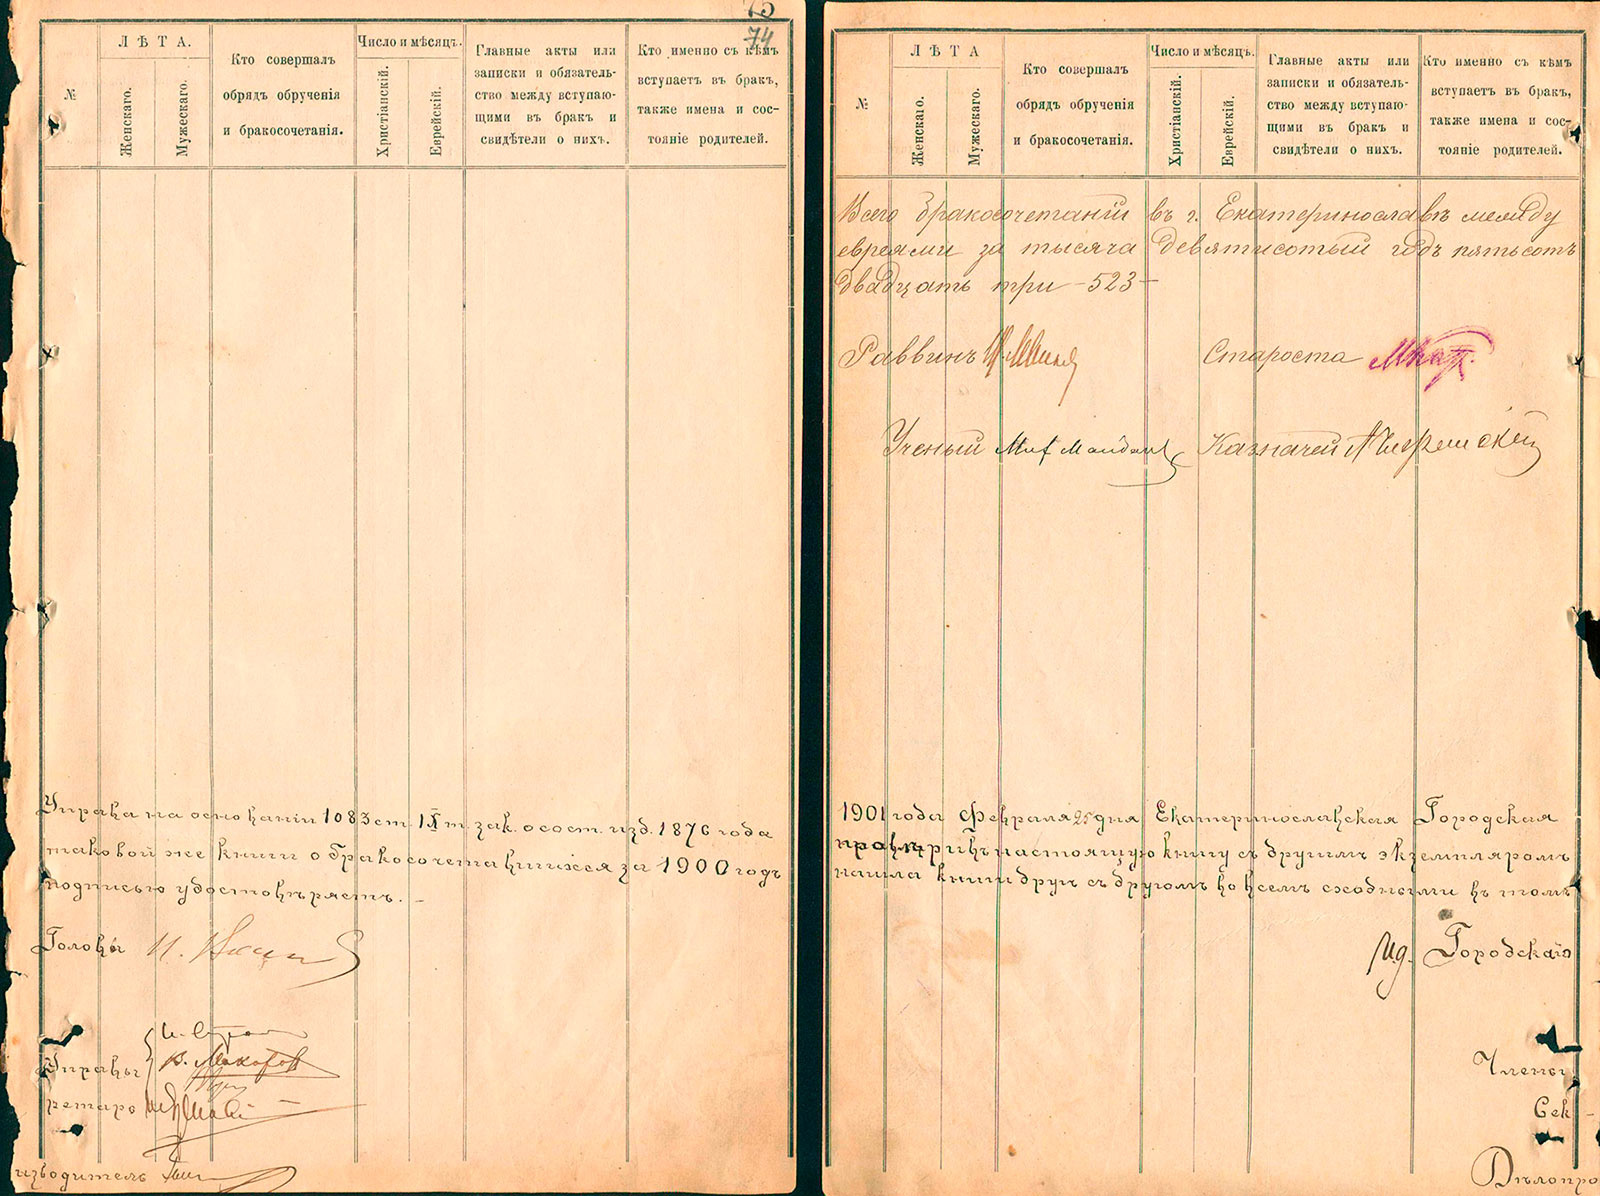 75
74
№
ЛѢТА.
Женскаго.
Мужескаго.
Кто совершалъ
обрядъ обрученія
и бракосочетанія.
Число и мѣсяцъ.
Христіанскій.
Еврейскій.
Главные акты или
записки и обязатель-
ство между вступаю-
щими въ бракъ и
свидѣтели о нихъ.
Кто именно съ кѣмъ
вступаетъ въ бракъ,
также имена и сос-
тояніе родителей.
Управа на основаніи 1083 ст. IX т. зак. о сост. изд. 1876 года
таковой же книги о бракосочетавшихся за 1900 годъ
подписью удостовѣряетъ.
Головы
Управы
В. Макаровъ
ретарь
изводитель
№
ЛѢТА
Женскаго.
Мужескаго.
Кто совершалъ
обрядъ обрученія
и бракосочетанія.
Число и мѣсяцъ.
Христіанскій.
Еврейскій.
Главные акты или
записки и обязатель-
ство между вступаю-
щими въ бракъ и
свидѣтели о нихъ.
Кто именно съ кѣмъ
вступаетъ въ бракъ,
также имена и сос-
тояніе родителей.
Всего бракосочетаній въ г. Екатеринославѣ между
евреями за тысяча девятисотый годъ пятьсотъ
двадцать три -523-
Раввинъ
Староста
Ученый
Казначей
1901 года Февраля 25 дня Екатеринославская Городская
провѣривъ настоящую книгу съ другимъ экземпляромъ
нашла книги другъ съ другомъ во всемъ сходными въ томъ
И.д. Городскаго
Члены
Сек-
Дѣлопро